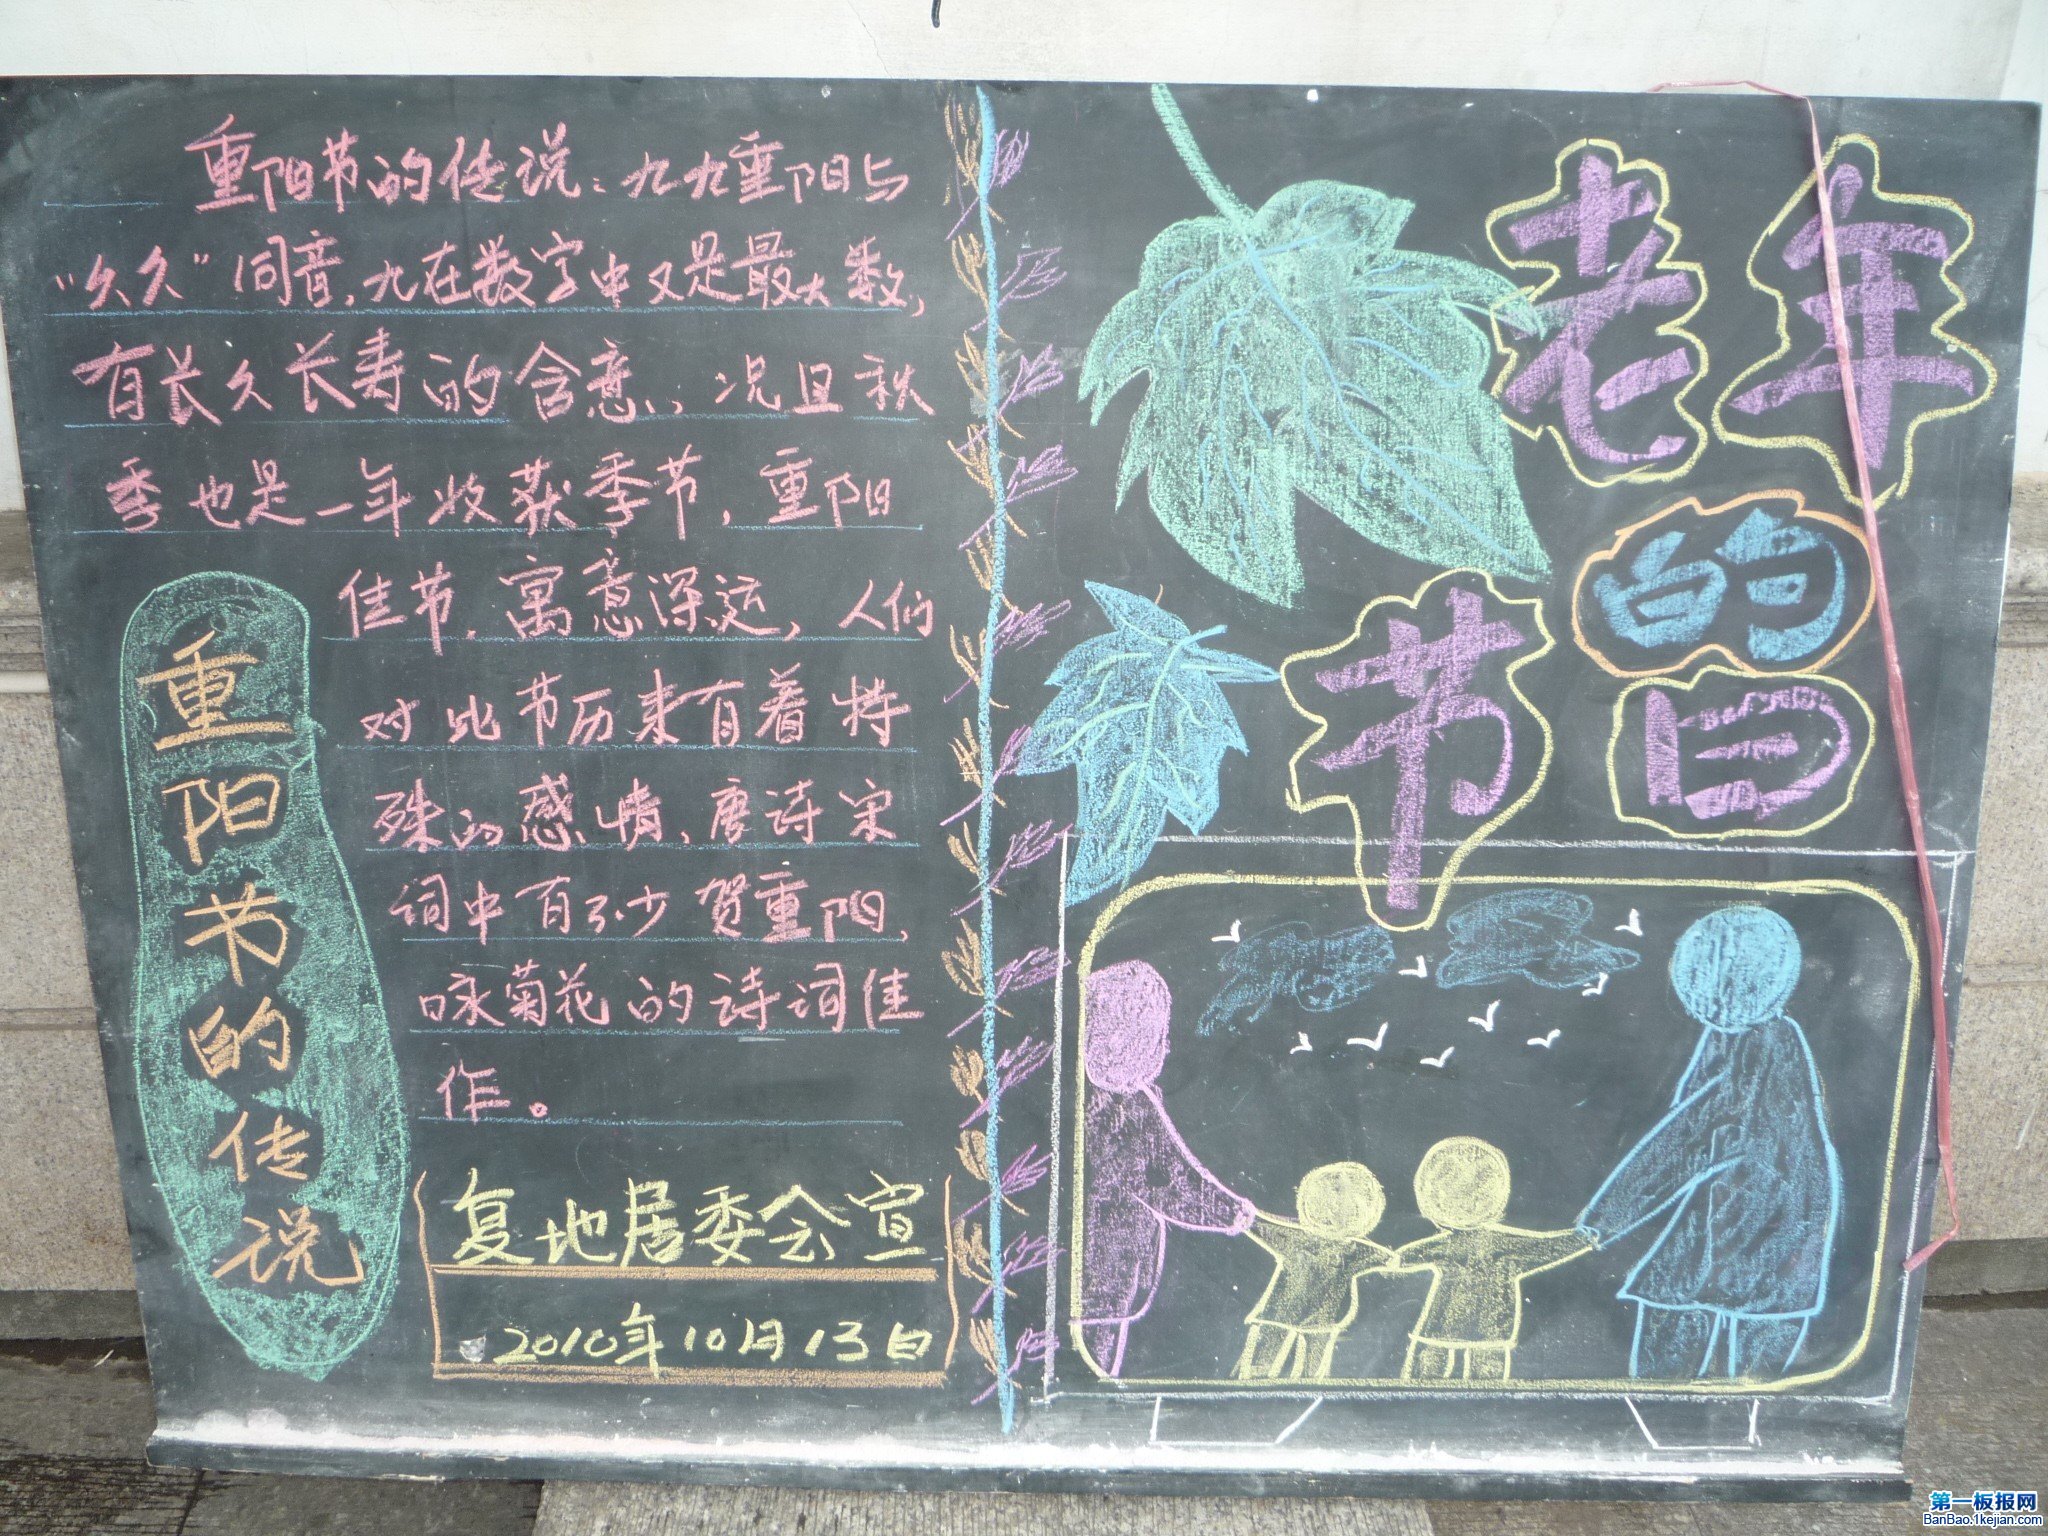 重阳节的传说：九九重阳与
“久久”同音，九在数字中又是最大数，
有长久长寿的含意，况且秋
季也是一年收获季节，重阳
佳节，寓意深远，人们
对比节历来有着特
殊的感情，唐诗宋
词中有不少贺重阳，
咏菊花的诗词佳
作。
重阳节的传说
复地居委会宣
2010年10月13日
老年
的
节日
第一板报网
BanBao.1kejian.com